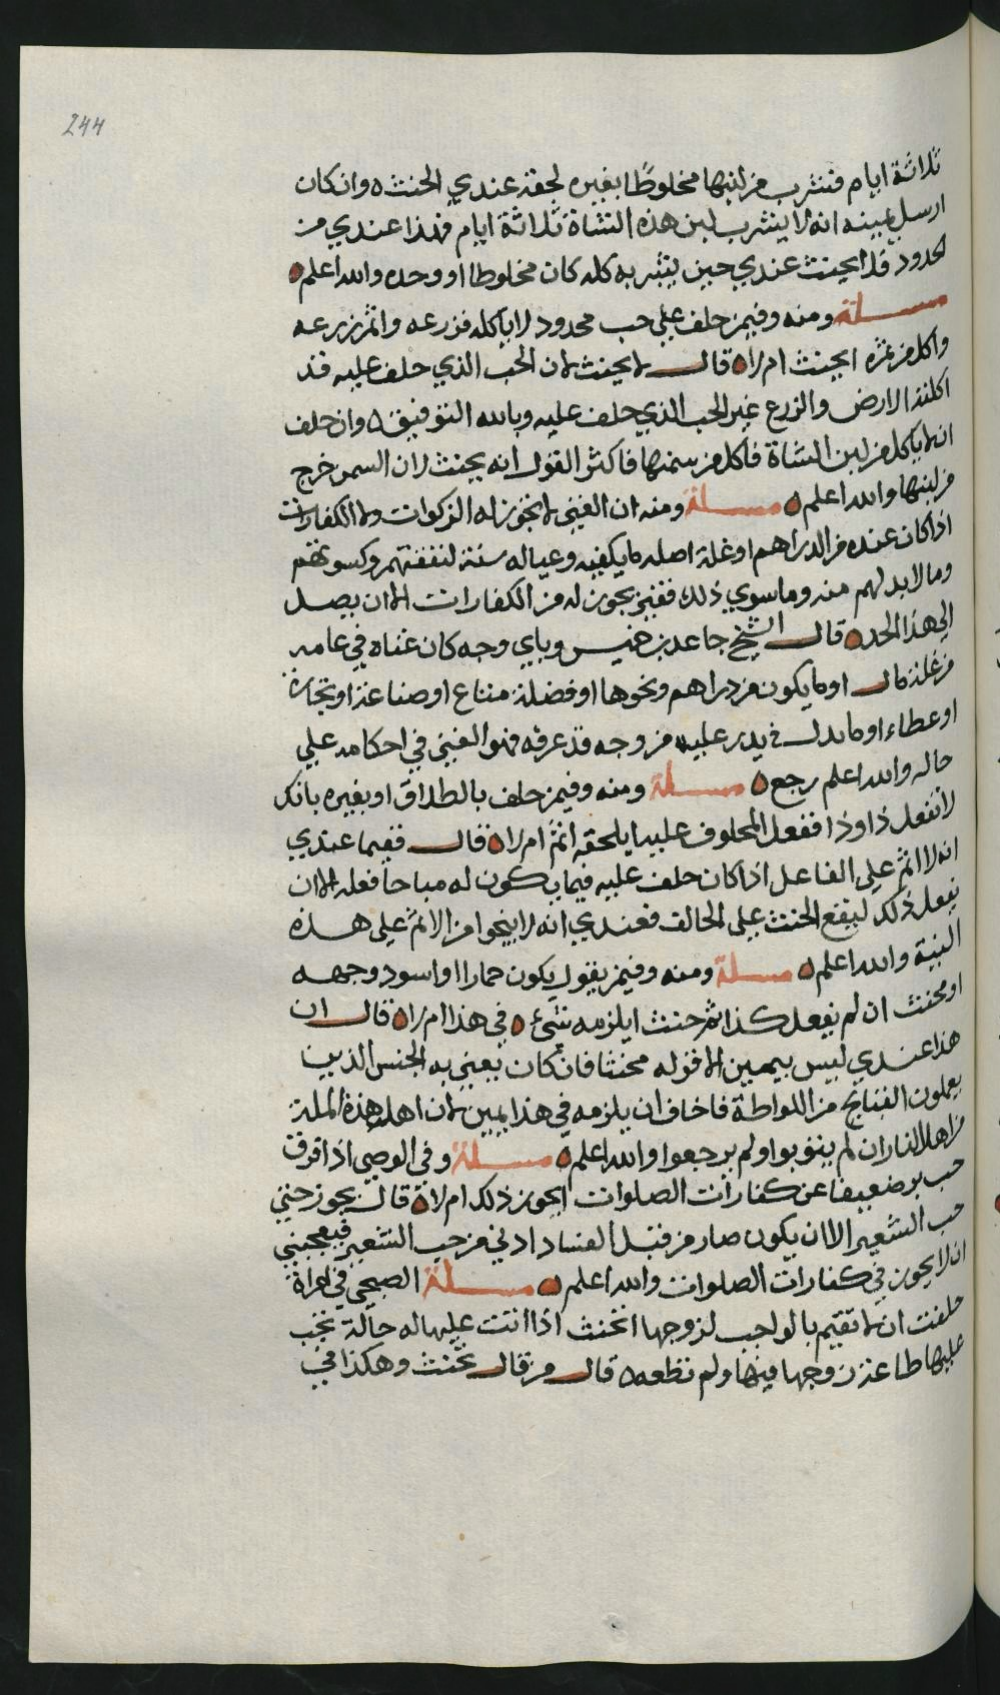 244
ثلاثة ايام فشرب من لبنها مخلوطًا بغيره لحقه عندي الحنث ٥ وان كان
ارسل يمينه انه لا يشرب لبن هذه الشاة ثلاثة ايام فهذا عندي من
لحدود فلا يحنث عندي حين يشربه كله كان مخلوطا او وحده والله اعلم ٥
مسـلة ومنه وفيمن حلف على حب محدود لا ياكله فزرعه واثمر زرعه
واكل من ثمره ايحنث ام لا ٥ قال لا يحنث لان الحب الذي حلف عليه قد
اكلته الارض والزرع غير الحب الذي حلف عليه وبالله التوفيق ٥ وان حلف
انه لا ياكل من لبن الشاة فاكل من سمنها فاكثر القول انه يحنث لان السمن خرج
من لبنها والله اعلم ٥ مسـلة ومنه ان الغني لا تجوز له الزكوات ولا الكفارات
اذا كان عنده من الدراهم او غلة اصله ما يكفيه وعياله سنة لنفقتهم وكسوتهم
وما لا بد لهم منه وما سوي ذلك ففقير يجوز له من الكفارات الا ان يصل
الي هذا الحد ٥ قال الشيخ جاعد بن خميس وباي وجه كان غناه في عامه
من غلة مال او ما يكون من دراهم ونحوها او فضلة متاع او صناعة او تجارة
او عطاء او ما يدل في يدر عليه من وجه قد عرفه فهو الغني في احكامه علي
حاله والله اعلم رجع ٥ مسـلة ومنه وفيمن حلف بالطلاق او بغيره بانك
لا تفعل ذا وذا ففعل المحلوف عليه ايلحقه اثم ام لا ٥ قال ففيما عندي
انه لا اثم علي الفاعل اذا كان حلف عليه فيما يكون له مباحا فعله الا ان
يفعل ذلك ليقع الحنث علي الحالف فعندي انه لا ينجوا من الاثم علي هـذه
النية والله اعلم ٥ مسـلة ومنه وفيمن يقول يكون حمارا او اسود وجهه
او مخنث ان لم يفعل كذا ثم حنث ايلزمه شيء ٥ في هذا ام لا ٥ قال ان
هذا عندي ليس بيمين الا قوله مخنثا فان كان يعني به الجنس الذين
يعملون القبائح من اللواطة فاخاف ان يلزمه في هذا يمين لان اهل هذه الملة
من اهل النار ان لم يتوبوا ولم يرجعوا والله اعلم ٥ مسـلة وفي الوصي اذا فرق
حب بر ضعيفا عن كفارات الصلوات ايجوز ذلك ام لا ٥ قال يجوز حتي
حب الشعير الا ان يكون صار من قبل الفساد ادني من حب الشعير فيعجبني
ان لا يجوز في كفارات الصلوات والله اعلم ٥ مسـلة الصبحي في امراة
حلفت ان لا تقيم بالواجب لزوجها اتحنث اذا اتت عليها له حالة تجب
عليها طاعة زوجها فيها ولم تطعه ٥ قال من قال تحنث وهكذا في